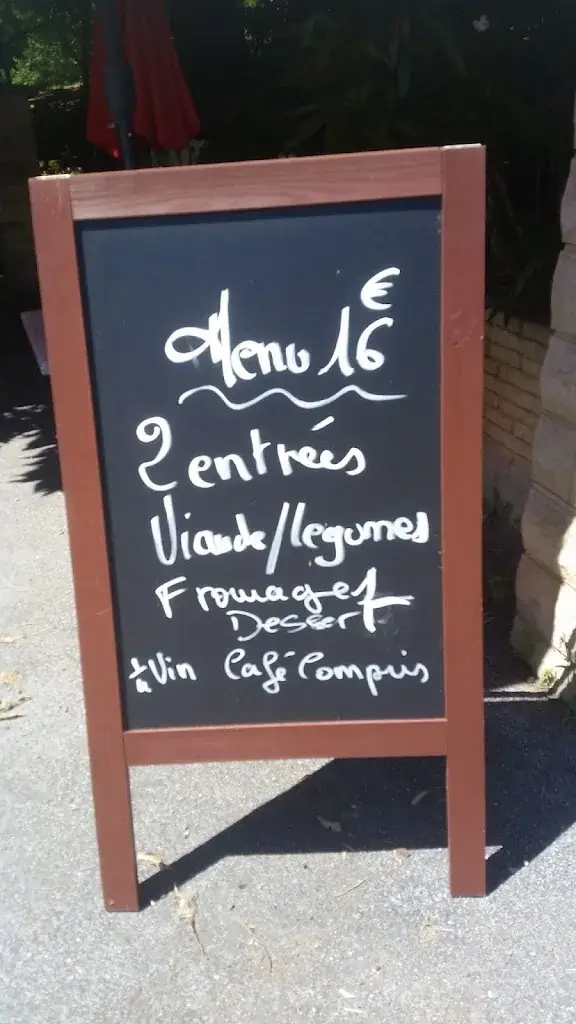 Menu 16 €
2 entrées
Viande/légumes
Fromages
Dessert
1/4 Vin Café Compris